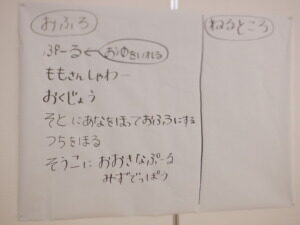 おふろ
ぷーる ← おゆをいれる
ももさんしゃわー
おくじょう
そとにあなをほっておふろにする
つちをほる
そうこに おおきなぷーる
みずでっぽう
ねるところ